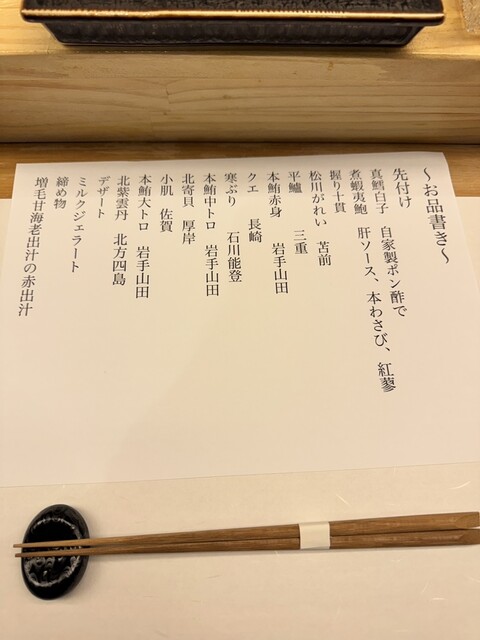 〜お品書き〜
先付け
真鱈白子　自家製ポン酢で
煮蝦夷鮑　肝ソース、本わさび、紅蓼
握り十貫
松川がれい　苫前
平鱸　三重
本鮪赤身　岩手山田
クエ　長崎
寒ぶり　石川能登
本鮪中トロ　岩手山田
北寄貝　厚岸
小肌　佐賀
本鮪大トロ　岩手山田
北紫雲丹　北方四島
デザート
ミルクジェラート
締め物
増毛甘海老出汁の赤出汁